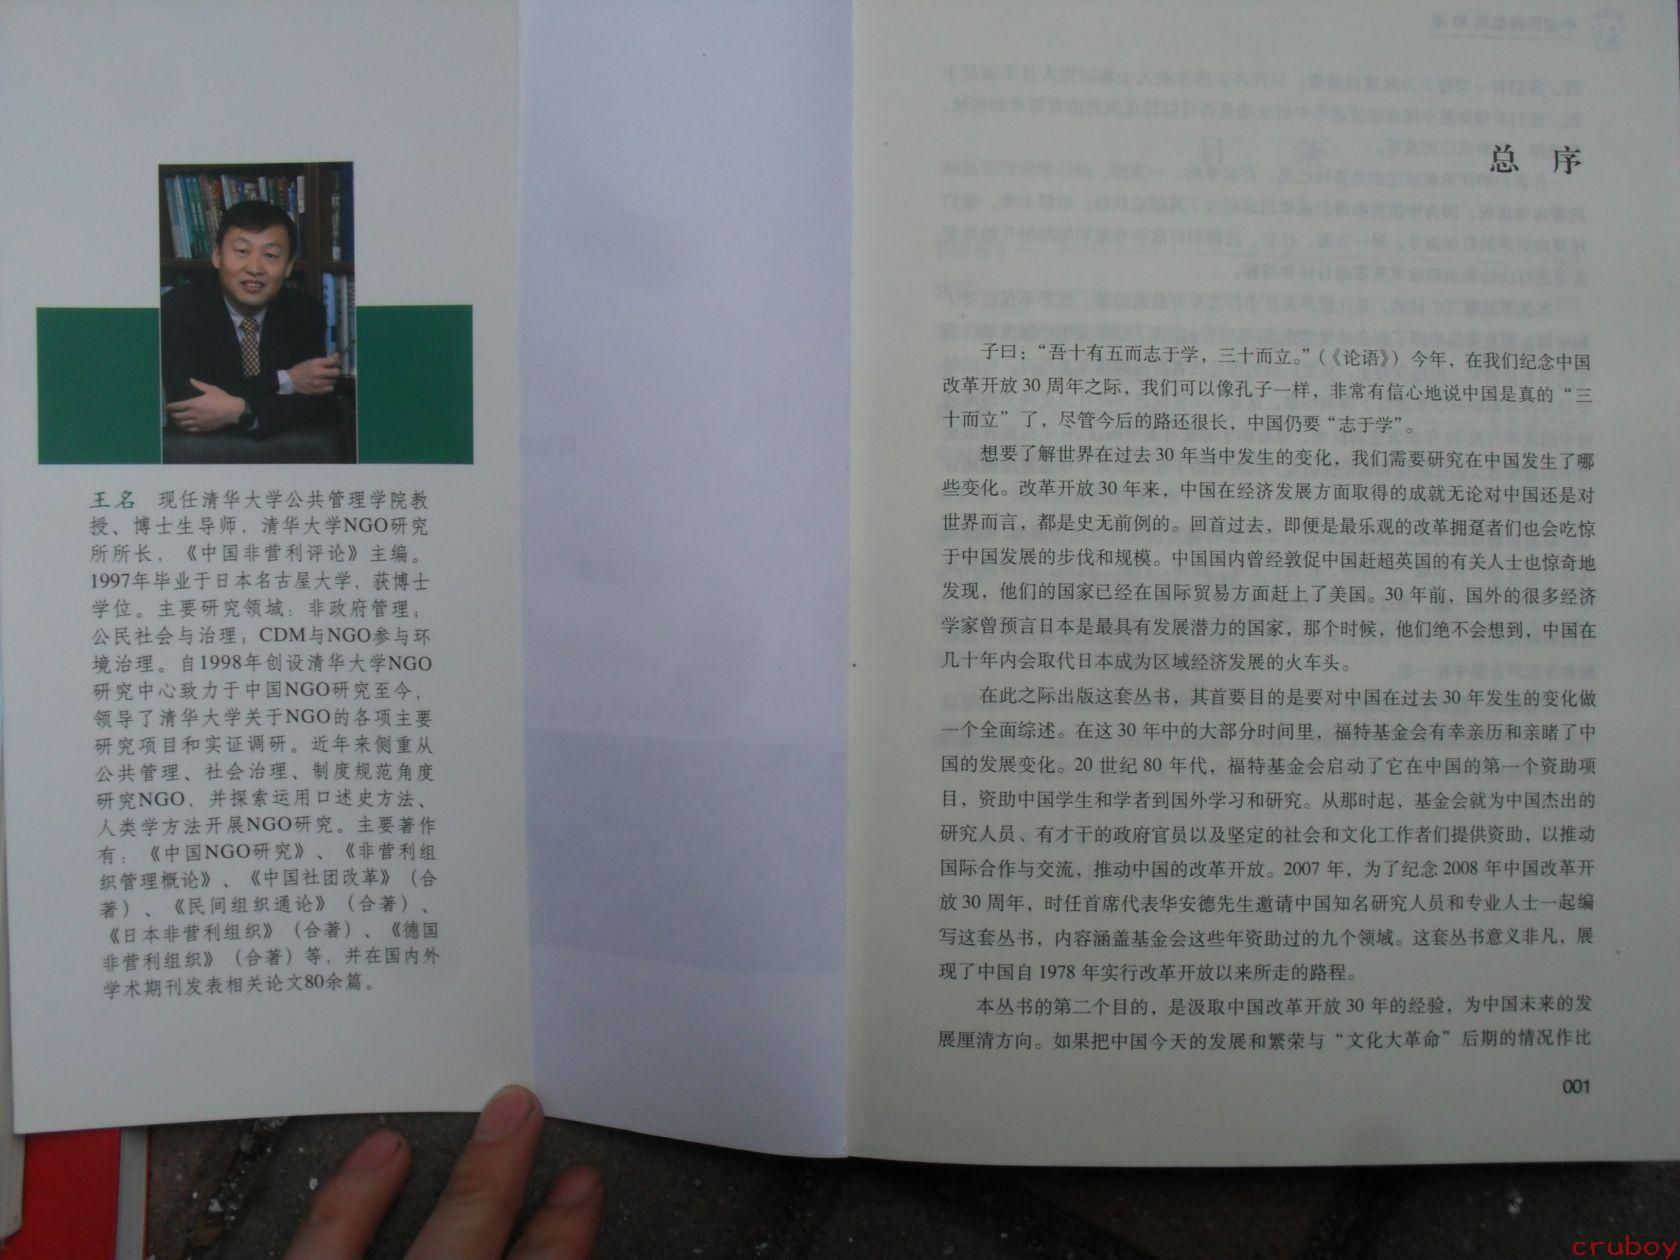 王名 现任清华大学公共管理学院教
授、博士生导师，清华大学NGO研究
所所长，《中国非营利评论》主编。
1997年毕业于日本名古屋大学，获博士
学位。主要研究领域：非政府管理；
公民社会与治理；CDM与NGO参与环
境治理。自1998年创设清华大学NGO
研究中心致力于中国NGO研究至今，
领导了清华大学关于NGO的各项主要
研究项目和实证调研。近年来侧重从
公共管理、社会治理、制度规范角度
研究NGO，并探索运用口述史方法、
人类学方法开展NGO研究。主要著作
有：《中国NGO研究》、《非营利组
织管理概论》、《中国社团改革》（合
著）、《民间组织通论》（合著）、
《日本非营利组织》（合著）、《德国
非营利组织》（合著）等，并在国内外
学术期刊发表相关论文80余篇。
总 序
子曰：“吾十有五而志于学，三十而立。”（《论语》）今年，在我们纪念中国
改革开放30周年之际，我们可以像孔子一样，非常有信心地说中国是真的“三
十而立”了，尽管今后的路还很长，中国仍要“志于学”。
想要了解世界在过去30年当中发生的变化，我们需要研究在中国发生了哪
些变化。改革开放30年来，中国在经济发展方面取得的成就无论对中国还是对
世界而言，都是史无前例的。回首过去，即便是最乐观的改革拥趸者们也会吃惊
于中国发展的步伐和规模。中国国内曾经敦促中国赶超英国的有关人士也惊奇地
发现，他们的国家已经在国际贸易方面赶上了美国。30年前，国外的很多经济
学家曾预言日本是最具有发展潜力的国家，那个时候，他们绝不会想到，中国在
几十年内会取代日本成为区域经济发展的火车头。
在此之际出版这套丛书，其首要目的是要对中国在过去30年发生的变化做
一个全面综述。在这30年中的大部分时间里，福特基金会有幸亲历和亲睹了中
国的发展变化。20世纪80年代，福特基金会启动了它在中国的第一个资助项
目，资助中国学生和学者到国外学习和研究。从那时起，基金会就为中国杰出的
研究人员、有才干的政府官员以及坚定的社会和文化工作者们提供资助，以推动
国际合作与交流，推动中国的改革开放。2007年，为了纪念2008年中国改革开
放30周年，时任首席代表华安德先生邀请中国知名研究人员和专业人士一起编
写这套丛书，内容涵盖基金会这些年资助过的九个领域。这套丛书意义非凡，展
现了中国自1978年实行改革开放以来所走的路程。
本丛书的第二个目的，是汲取中国改革开放30年的经验，为中国未来的发
展厘清方向。如果把中国今天的发展和繁荣与“文化大革命”后期的情况作比
001
cruboy